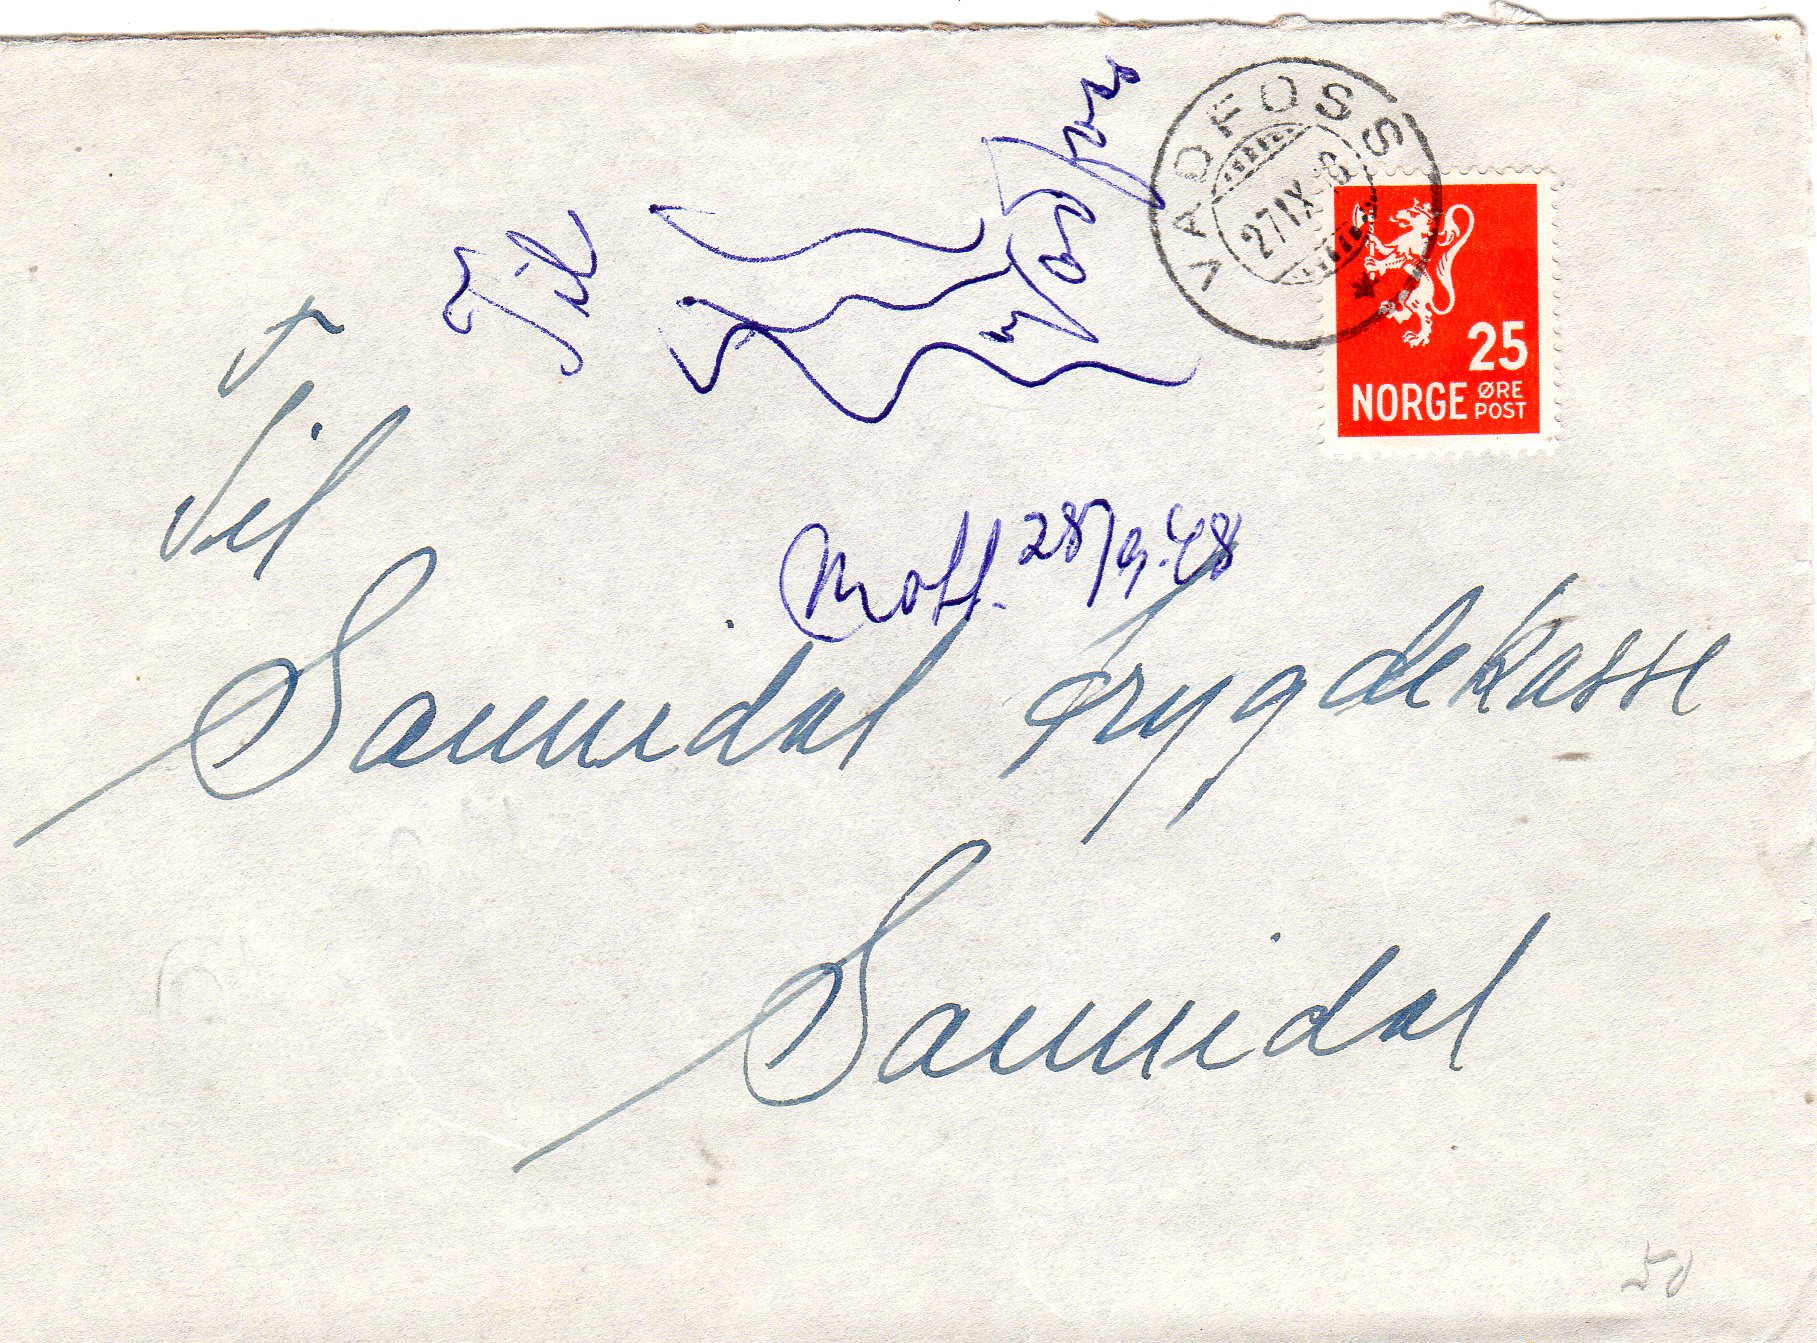 VADFOSS
27 IX
25
NORGE ØRE POST
Til
Mott. 28/9.48
Til
Sannidal Trygdekasse
Sannidal
50